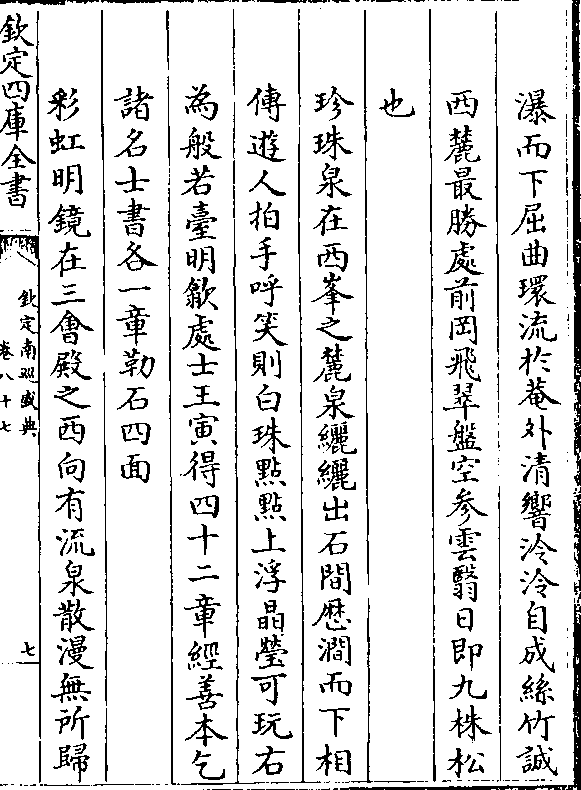 瀑而下屈曲環流於菴外清響泠泠自成絲竹誠
西麓最勝處前岡飛翠盤空參雲翳日即九株松
也
珍珠泉在西峯之麓泉纚纚出石間歴澗而下相
傳遊人拍手呼笑則白珠點點上浮晶瑩可玩右
為般若臺明歙處士王寅得四十二章經善本乞
諸名士書各一章勒石四面
彩虹明鏡在三會殿之西向有流泉散漫無所歸
欽定四庫全書
欽定南巡盛典
卷八十七
七